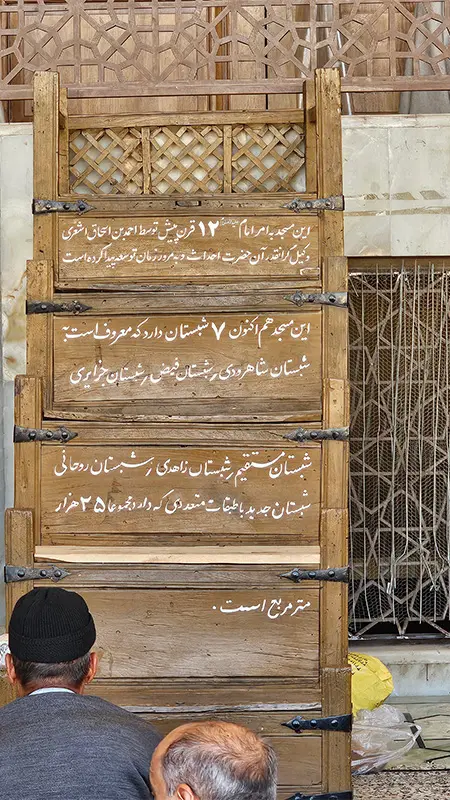 این مسجد به امر امام ۱۲ قرن پیش توسط احمد بن اسحاق اشعری
وکیل گرانقدر آن حضرت احداث و به مرور زمان توسعه پیدا کرده است
این مسجد هم اکنون ۷ شبستان دارد که معروف است به:
شبستان شاهرودی، شبستان فیض، شبستان جزایری
شبستان مستقیم، شبستان زاهدی، شبستان روحانی
شبستان جدید با طبقات متعددی که دارد مجموعا ۲۵ هزار
متر مربع است.